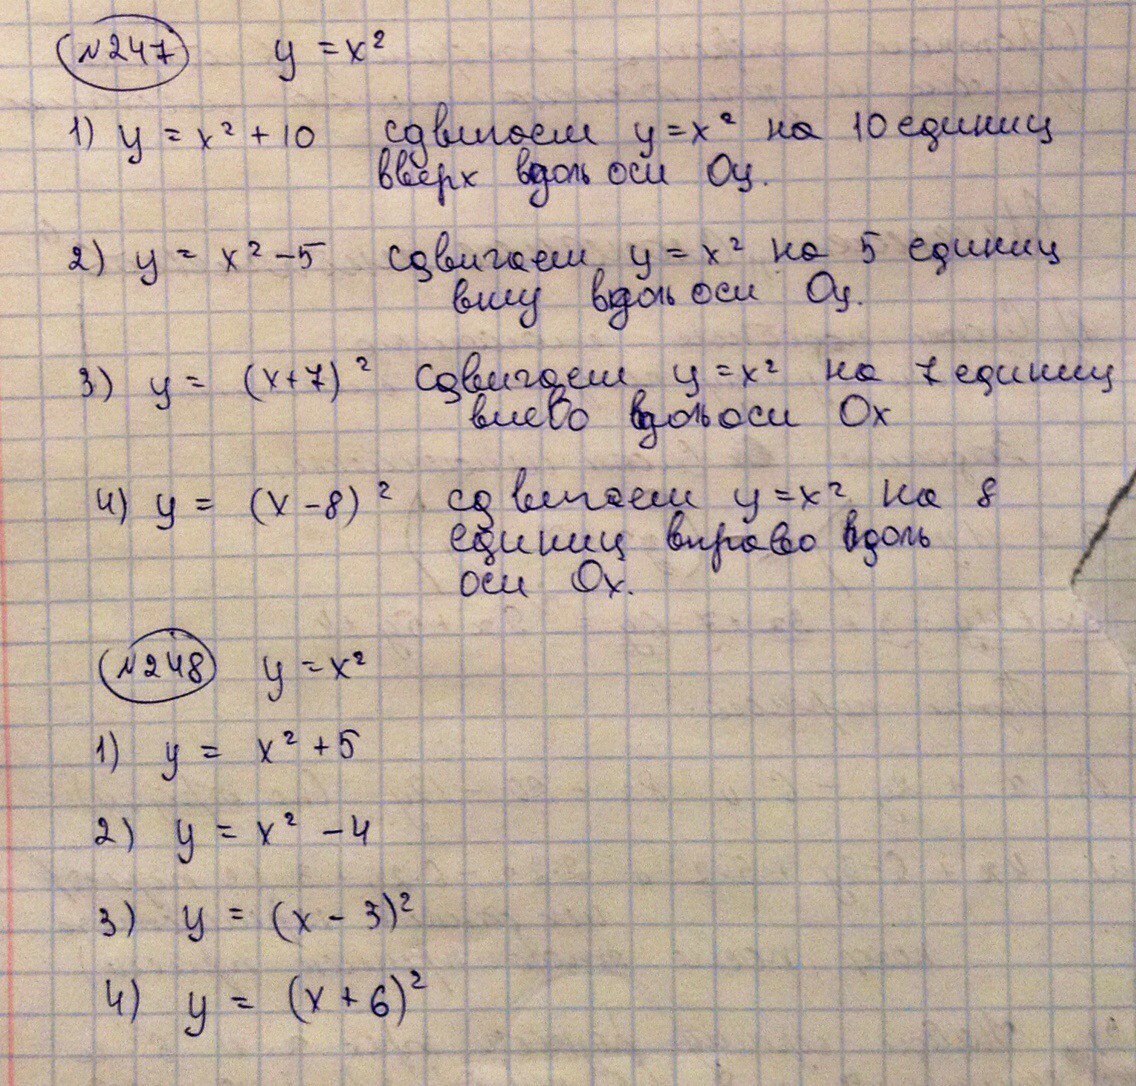 №247 y = x²
1) y = x² + 10 сдвигаем y = x² на 10 единиц
вверх вдоль оси Оу.
2) y = x² - 5 сдвигаем y = x² на 5 единиц
вниз вдоль оси Оу.
3) y = (x+7)² сдвигаем y = x² на 7 единиц
влево вдоль оси Ох
4) y = (x - 8)² сдвигаем y = x² на 8
единиц вправо вдоль
оси Ох.
№248 y = x²
1) y = x² + 5
2) y = x² - 4
3) y = (x - 3)²
4) y = (x + 6)²